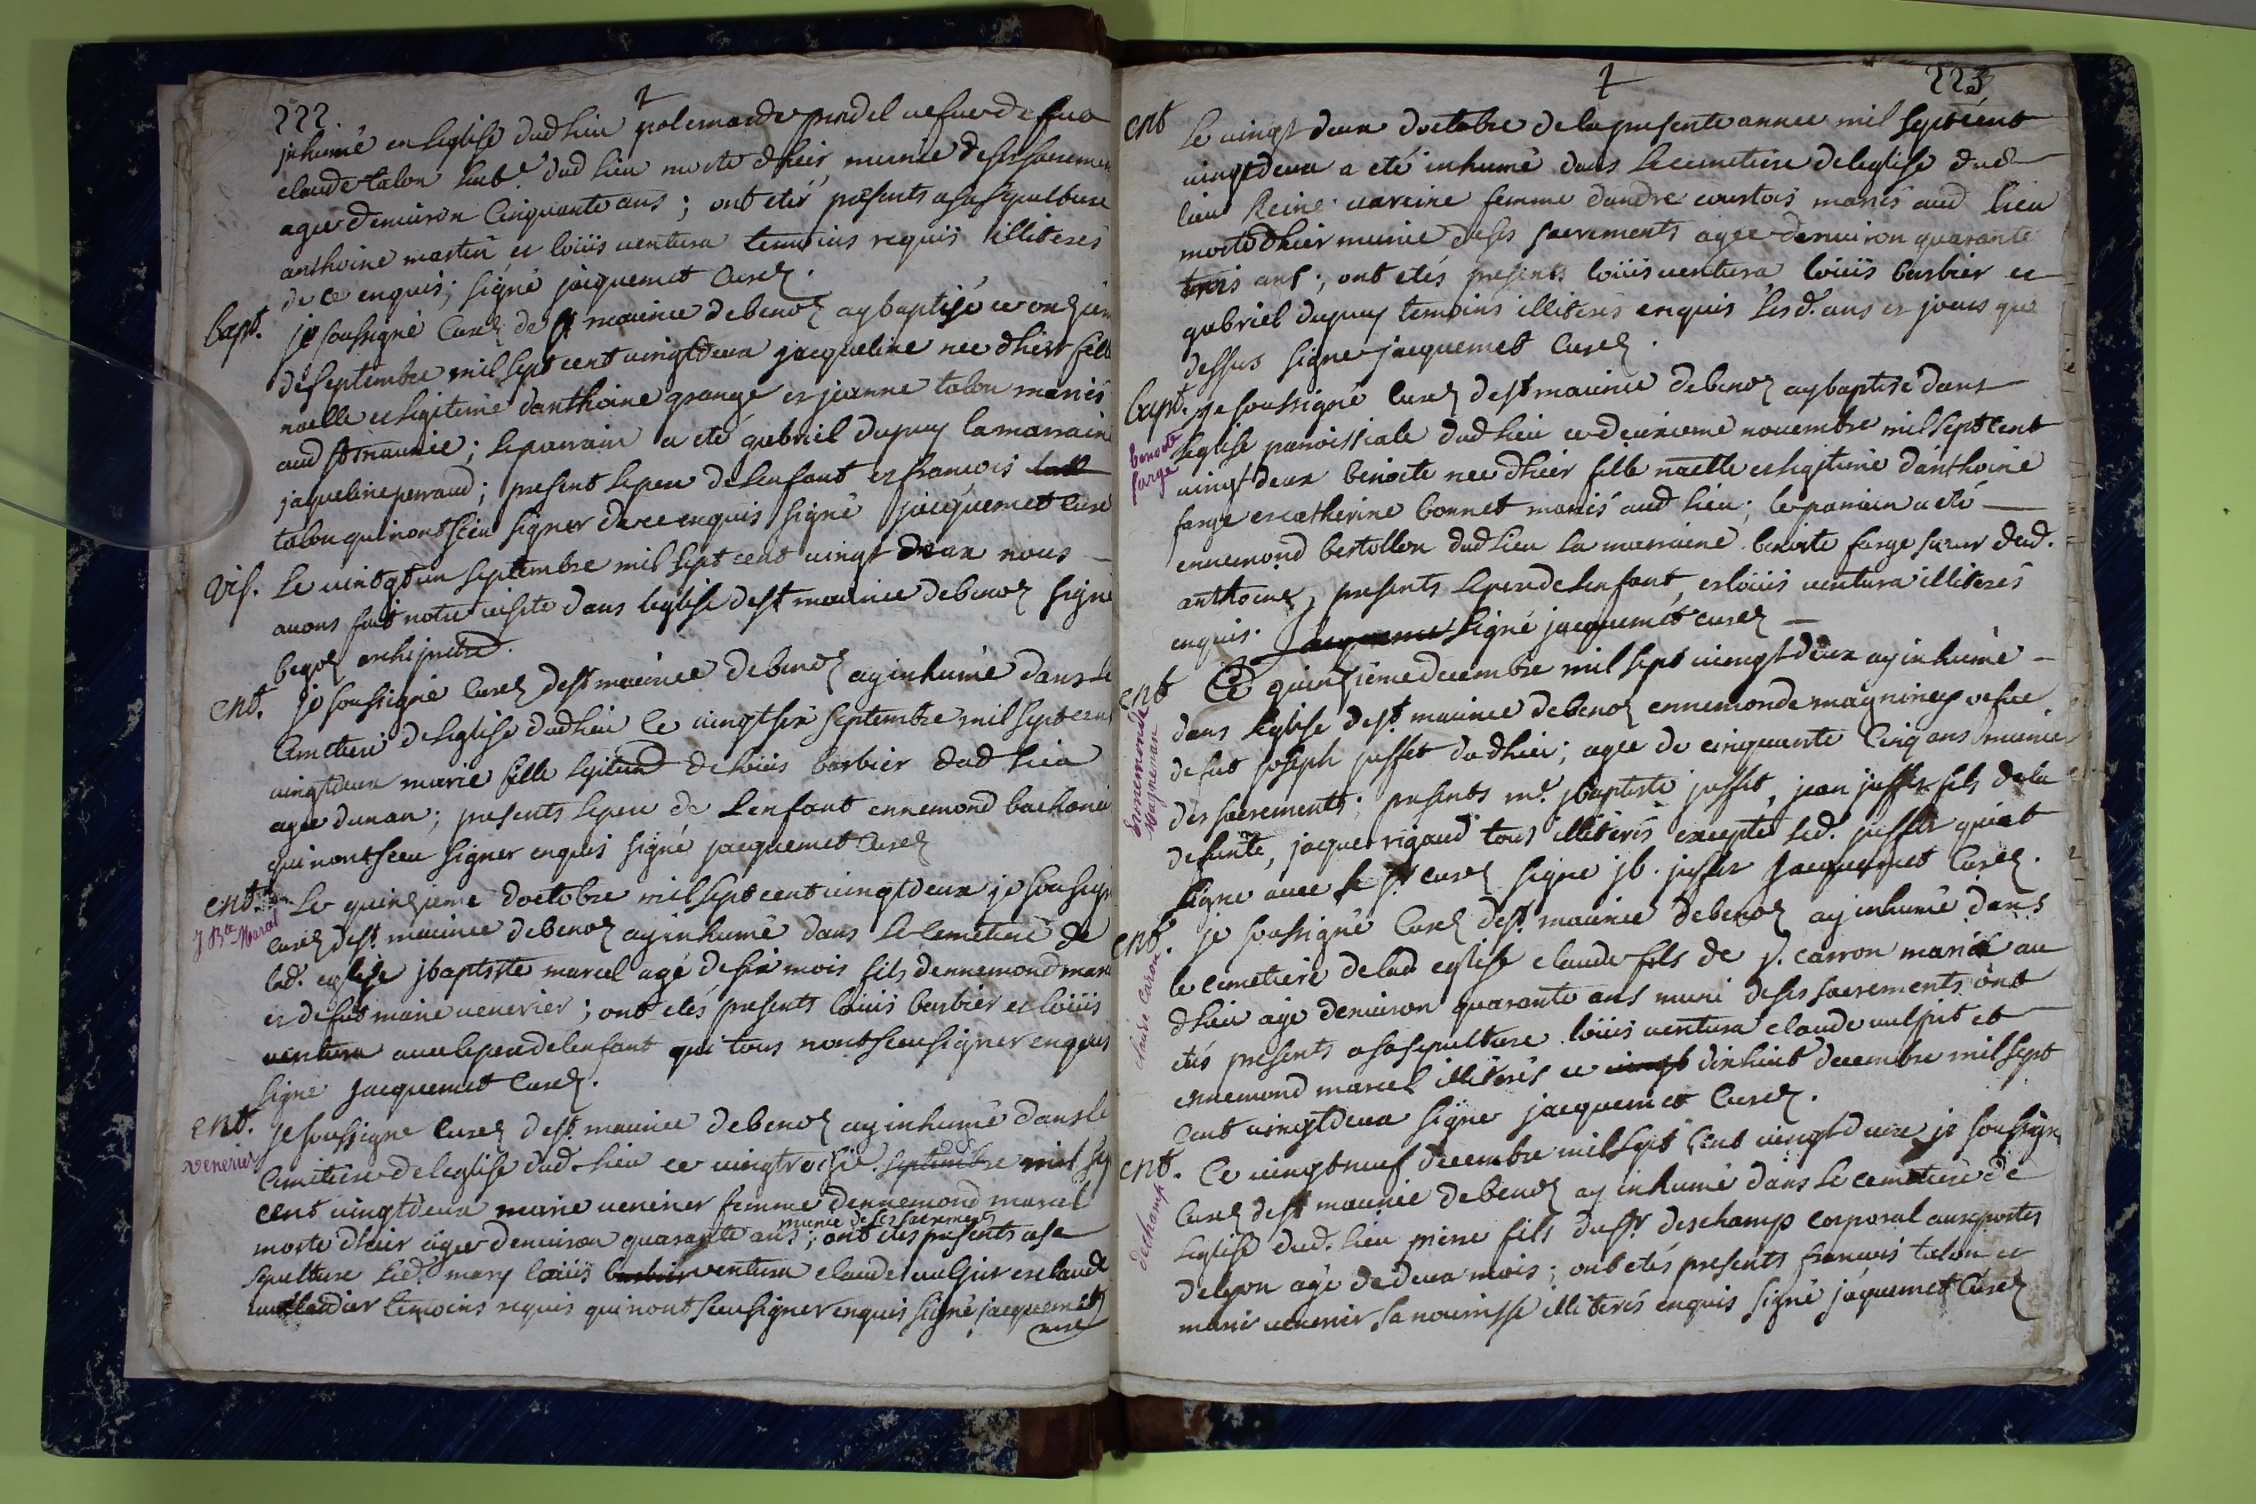 222.
inhumé en leglise dud lieu polemarde pradel vefue de feu
claude talon hab.t dud lieu morte d'hier, munie de ses sacremen
agee denuiron Cinquante ans ; ont etés présents a sa sepulture
anthoine martin et loüis uentura temoins requis illiterés
de ce enquis ; signé jacquemet Curé.
Bapt. je soussigné Curé de st maurice debenoz ay baptisé ce onzie
de septembre mil sept cent uingt deux jacqueline nee d'hier fille
natlle et legitime d'anthoine grange et jeanne talon mariés
aud st maurice ; le parrain a eté gabriel dupuy la marraine
jaqueline perraud ; present le pere de l'enfant et francois
talon qui n'ont sceu signer de ce enquis signé jacquemet Curé
Vis. Le uintgt un septembre mil sept cent uingt deux nous
auons fait notre uisite dans leglise de st maurice debenoz signé
begoz archipretre.
ent. je soussigné Curé de st maurice debenoz ay inhumé dans le
Cimetiere de leglise dud lieu ce uingt six septembre mil sept cens
uingt deux marie fille legitime de loüis barbier dud lieu
agee d'un an ; presents le pere de l'enfant ennemond
qui n'ont sceu signer enquis signé jacquemet Curé
ent. Le quinzieme d'octobre mil sept cent uingt deux je soussign
J Bte Marcel
Curé de st maurice debenoz ay inhumé dans le Cemetiere de
lad. eglise jbaptiste marcel agé de six mois fils dennemond marc
et de fut marie uenerier ; ont etés presents loüis barbier et loüis
uentura auec le pere de lenfant qui tous n'ont sceu signer enquis
signe Jacquemet Curé.
ent. Je soussigne Curé de st maurice debenoz ay inhumé dans le
venerier
Cimetiere de leglise dud lieu ce uingtroisie. septembre mil sep
cent uingt deux marie uenerier femme dennemond marcel
munie de ses sacrements
morte d'hier agee denuiron quarante ans ; ont etés presents a sa
sepulture led. mary loüis barbier uentura claude uulpier et claude
temoins requis qui n'ont sceu signer enquis signé jacquemet
curé
223
ent Le uingt deux d'octobre de la presente annee mil sept cent
uingt deux a eté inhumé dans le cemetiere de leglise dud
lieu Reine uareine femme dandre courtois mariés aud lieu
morte d'hier munie de ses sacrements agee denuiron quarante
trois ans ; ont etés presents loüis uentura loüis barbier et
gabriel dupuy temoins illiterés enquis les d. ans et jours que
dessus signe jacquemet Curé.
bapt. Je soussigné Curé de st maurice debenoz ay baptisé dans
benoite farge
leglise paroissiale dud lieu ce deuxieme nouembre mil sept cent
uingt deux benoite nee d'hier fille natlle et legitime d'anthoine
farge et catherine bonnet mariés aud lieu ; le parrain a eté
ennemond bertollon dud lieu la marraine benoite farge sœur dud.
anthoine, presents le pere de lenfant, et loüis uentura illiterés
enquis. Jacqueme signé jacquemet curé
ent Ce quinzieme decembre mil sept uingt deux ay inhumé
Ennemonde Magninan
dans leglise de st. maurice debenoz ennemonde magniney vefue
de fut joseph jusset dud lieu ; agee de cinquante Cinq ans munie
des sacrements ; presents mr. jbaptiste jusset, jean jusset fils de la
defunte, jacque rigaud tous illiterés excepté led. jusset qui at
signe auec le sr Curé signe jb. jusset Jacquemet Curé.
ent. je soussigné Curé de st. maurice debenoz ay inhumé dans
claude caron
le cemetiere de lad eglise claude fils de p. carron marié au
d lieu agé denuiron quarante ans muni de ses sacrements ont
etés presents a sa sepulture loüis uentura claude uulpit et
ennemond marcel illiterés ce uingt dixhuit decembre mil sept
Cent uingt deux signe jacquemet Curé.
ent. Ce uingt neuf decembre mil sept Cent uingt deux je soussigné
dechamp
Curé de st maurice debenoz ay inhumé dans le cemetiere de
leglise dud. lieu pierre fils du sr deschamp corporal aux portes
de lyon agé de deux mois ; ont etés presents francois talon et
marie uenerier sa nourrisse illiterés enquis signé jaquemet Curé